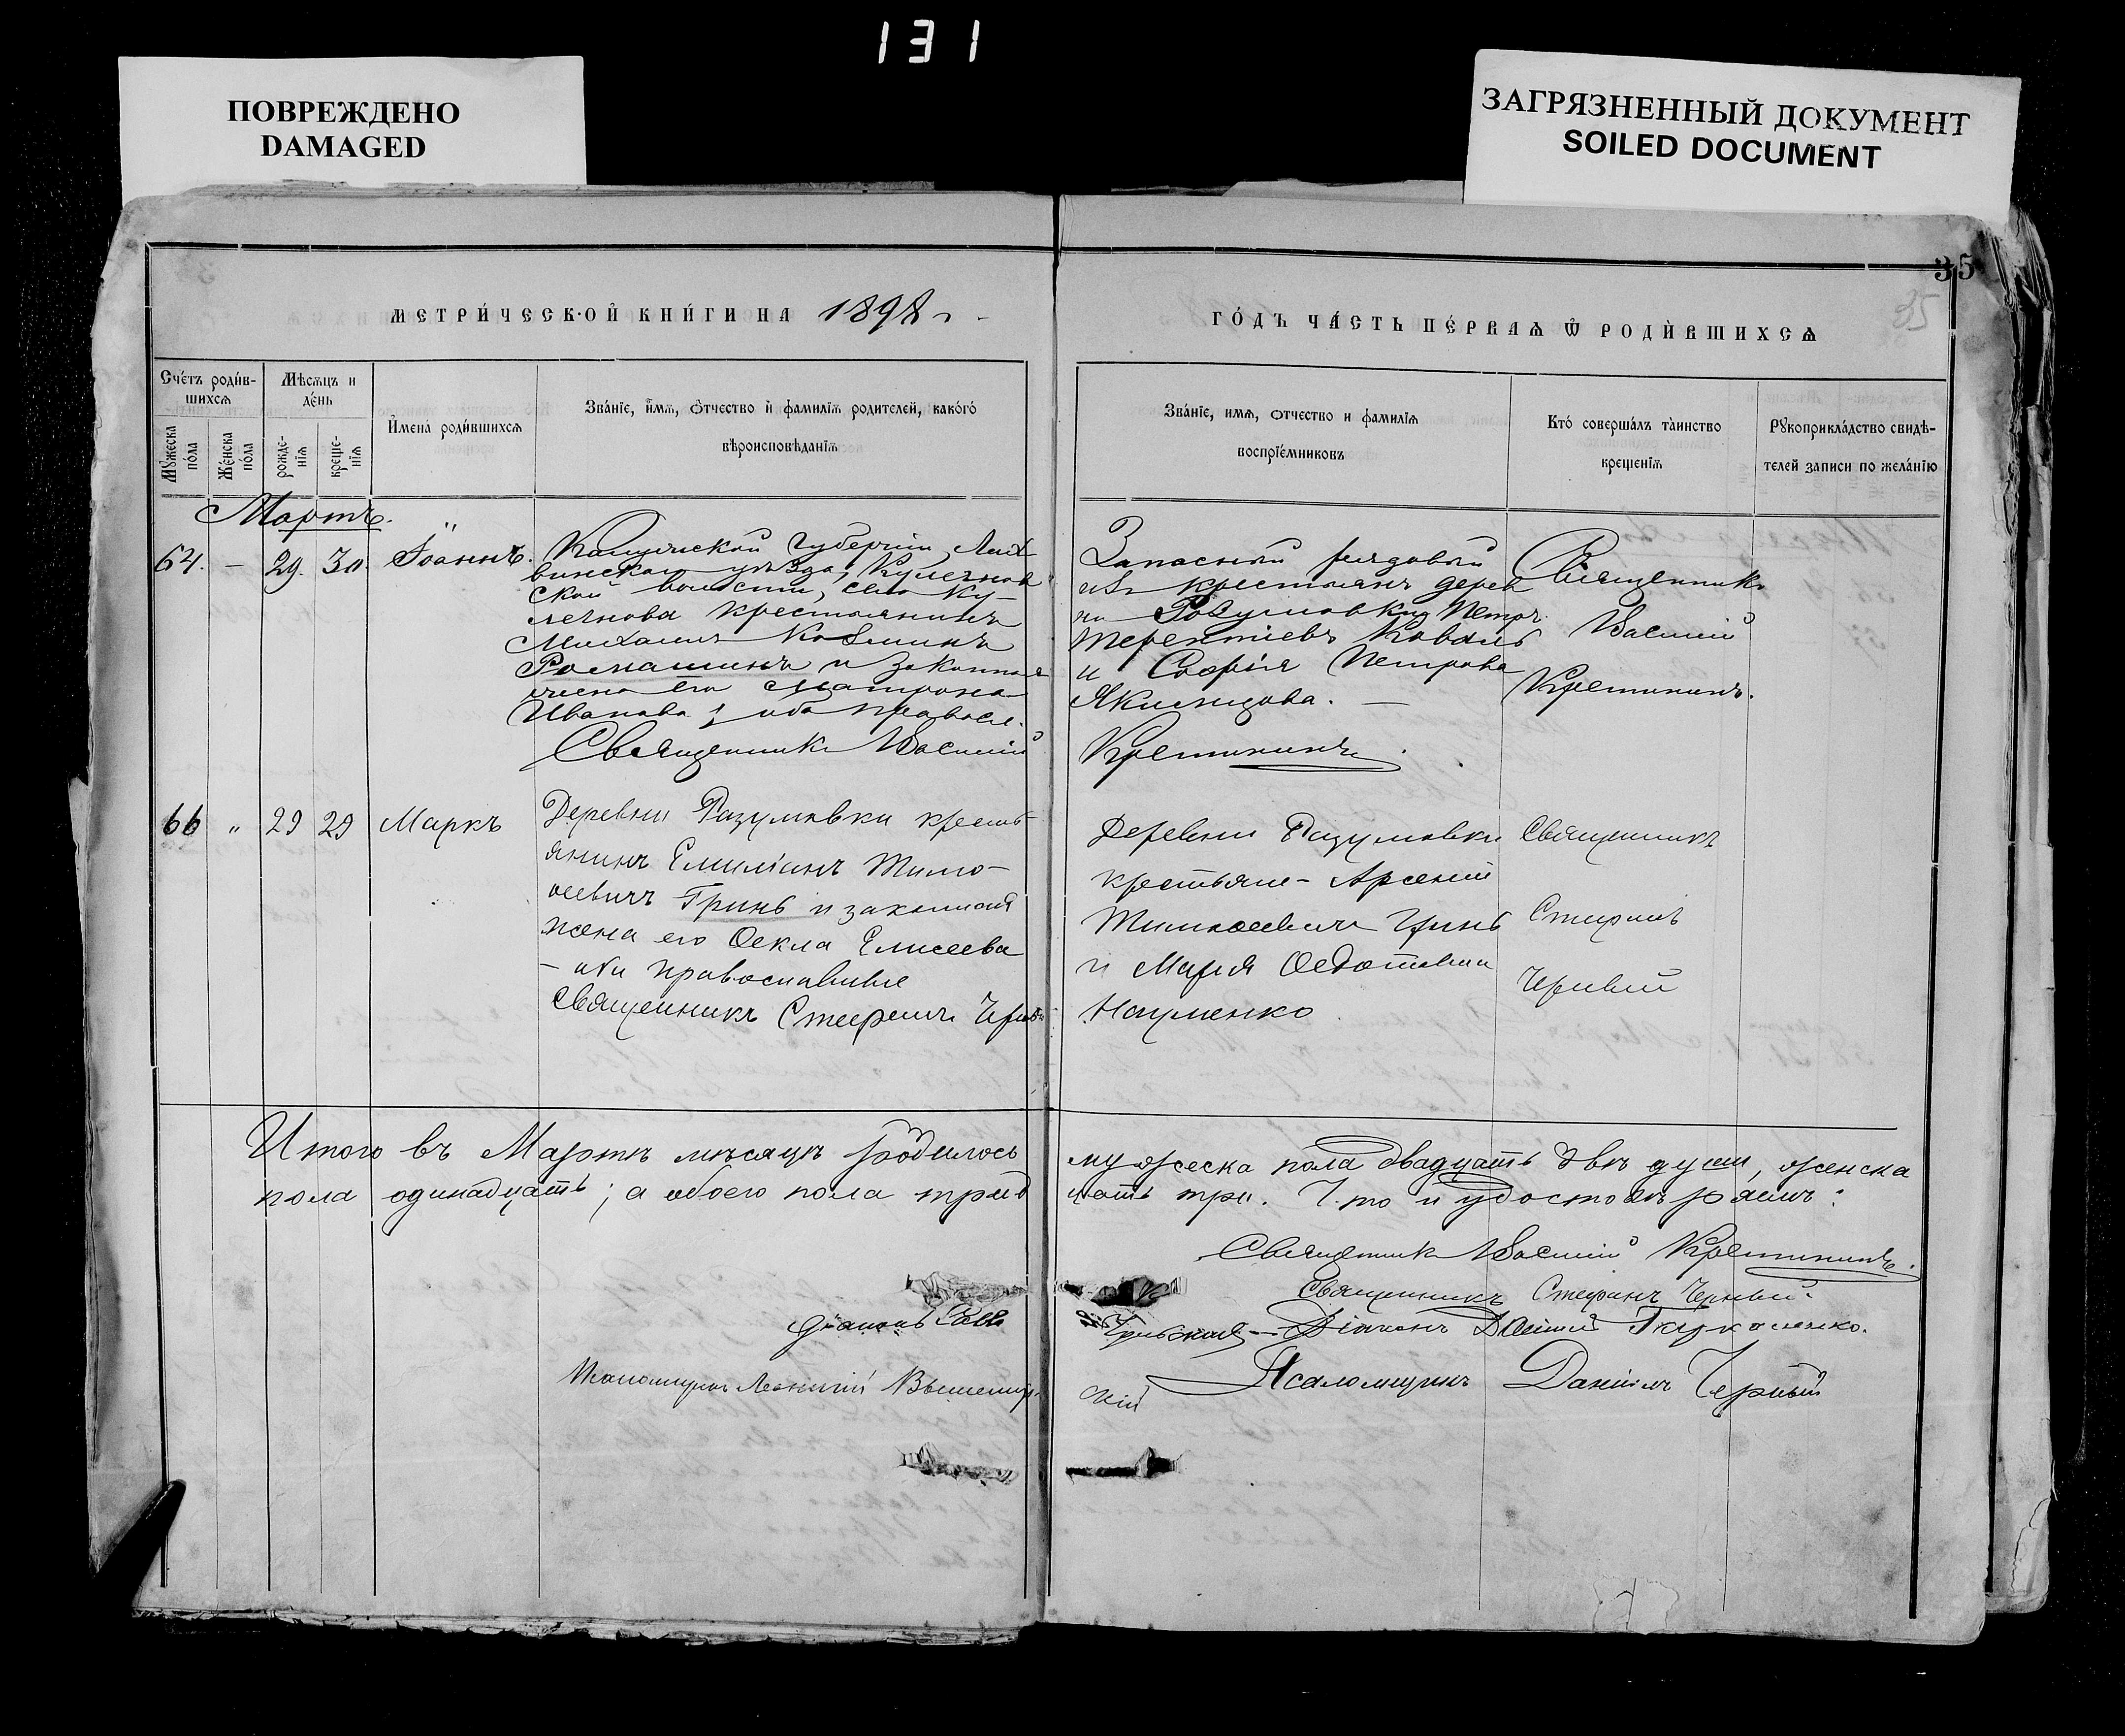 131
ПОВРЕЖДЕНО
DAMAGED
ЗАГРЯЗНЕННЫЙ ДОКУМЕНТ
SOILED DOCUMENT
35
35
МЕТРИ́ЧЕСКОЙ КНИ́ГИ НА 1898
ГО́ДЪ ЧА́СТЬ ПЕ́РВАѦ Ѿ РОДИ́ВШИХСѦ
Сче́тъ роди́в-
шихсѧ
Мѣсѧцъ и
де́нь
Мꙋжеска по́ла
Же́нска по́ла
рожде-
нїѧ
креще-
нїѧ
И҆мена́ роди́вшихсѧ
Зва́нїе, и҆́мѧ, ѻ҆́тчество и҆ фамилїѧ родителей, како́гѡ
вѣроисповѣданїѧ
Зва́нїе, имѧ, ѻтчество и фамилїѧ
воспрїе́мниковъ
Кто́ соверша́лъ та̀инство
крещенїѧ
Рꙋкоприкла́дство свидѣ-
телей записи по жела́нїю
Мартъ.
64. — 29. 30. Іоаннъ.
Калужской губерніи, Лих
винскаго уѣзда,
ской волости, села Ку-
лешова крестьянинъ
Михаилъ Козьминъ
Ромашинъ и законная
жена его Матрона
Иванова, оба правосл.
Священникъ Василій
Запасный рядовый
изъ крестьянъ дерев
ни Разумовки Петръ
Терентіевъ Коваль
и Софія Петрова
Якимцова. —
Кретининъ.
Священникъ
Василій
Кретининъ.
66 „ 29 29 Маркъ
Деревни Разумовки кресть-
янинъ Емиліанъ Тимо-
ѳеевичъ Гринь и законная
жена его Ѳекла Елисеева
— оба православные
Священникъ Стефанъ
Деревни Разумовки
крестьяне — Арсеній
Тимоѳеевичъ Гринь
и Марія Ѳедотовна
Науменко
Священникъ
Стефанъ
Итого въ Мартѣ мѣсяцѣ родилось
мужеска пола двадцать двѣ души, женска
пола одинадцать; а обоего пола трид
цать три. Что и удостовѣряемъ:
Священникъ Василій Кретининъ.
Священникъ Стефанъ
діаконъ
Діаконъ
Псаломщикъ Леонтій
скій
Псаломщикъ Даніилъ Черный